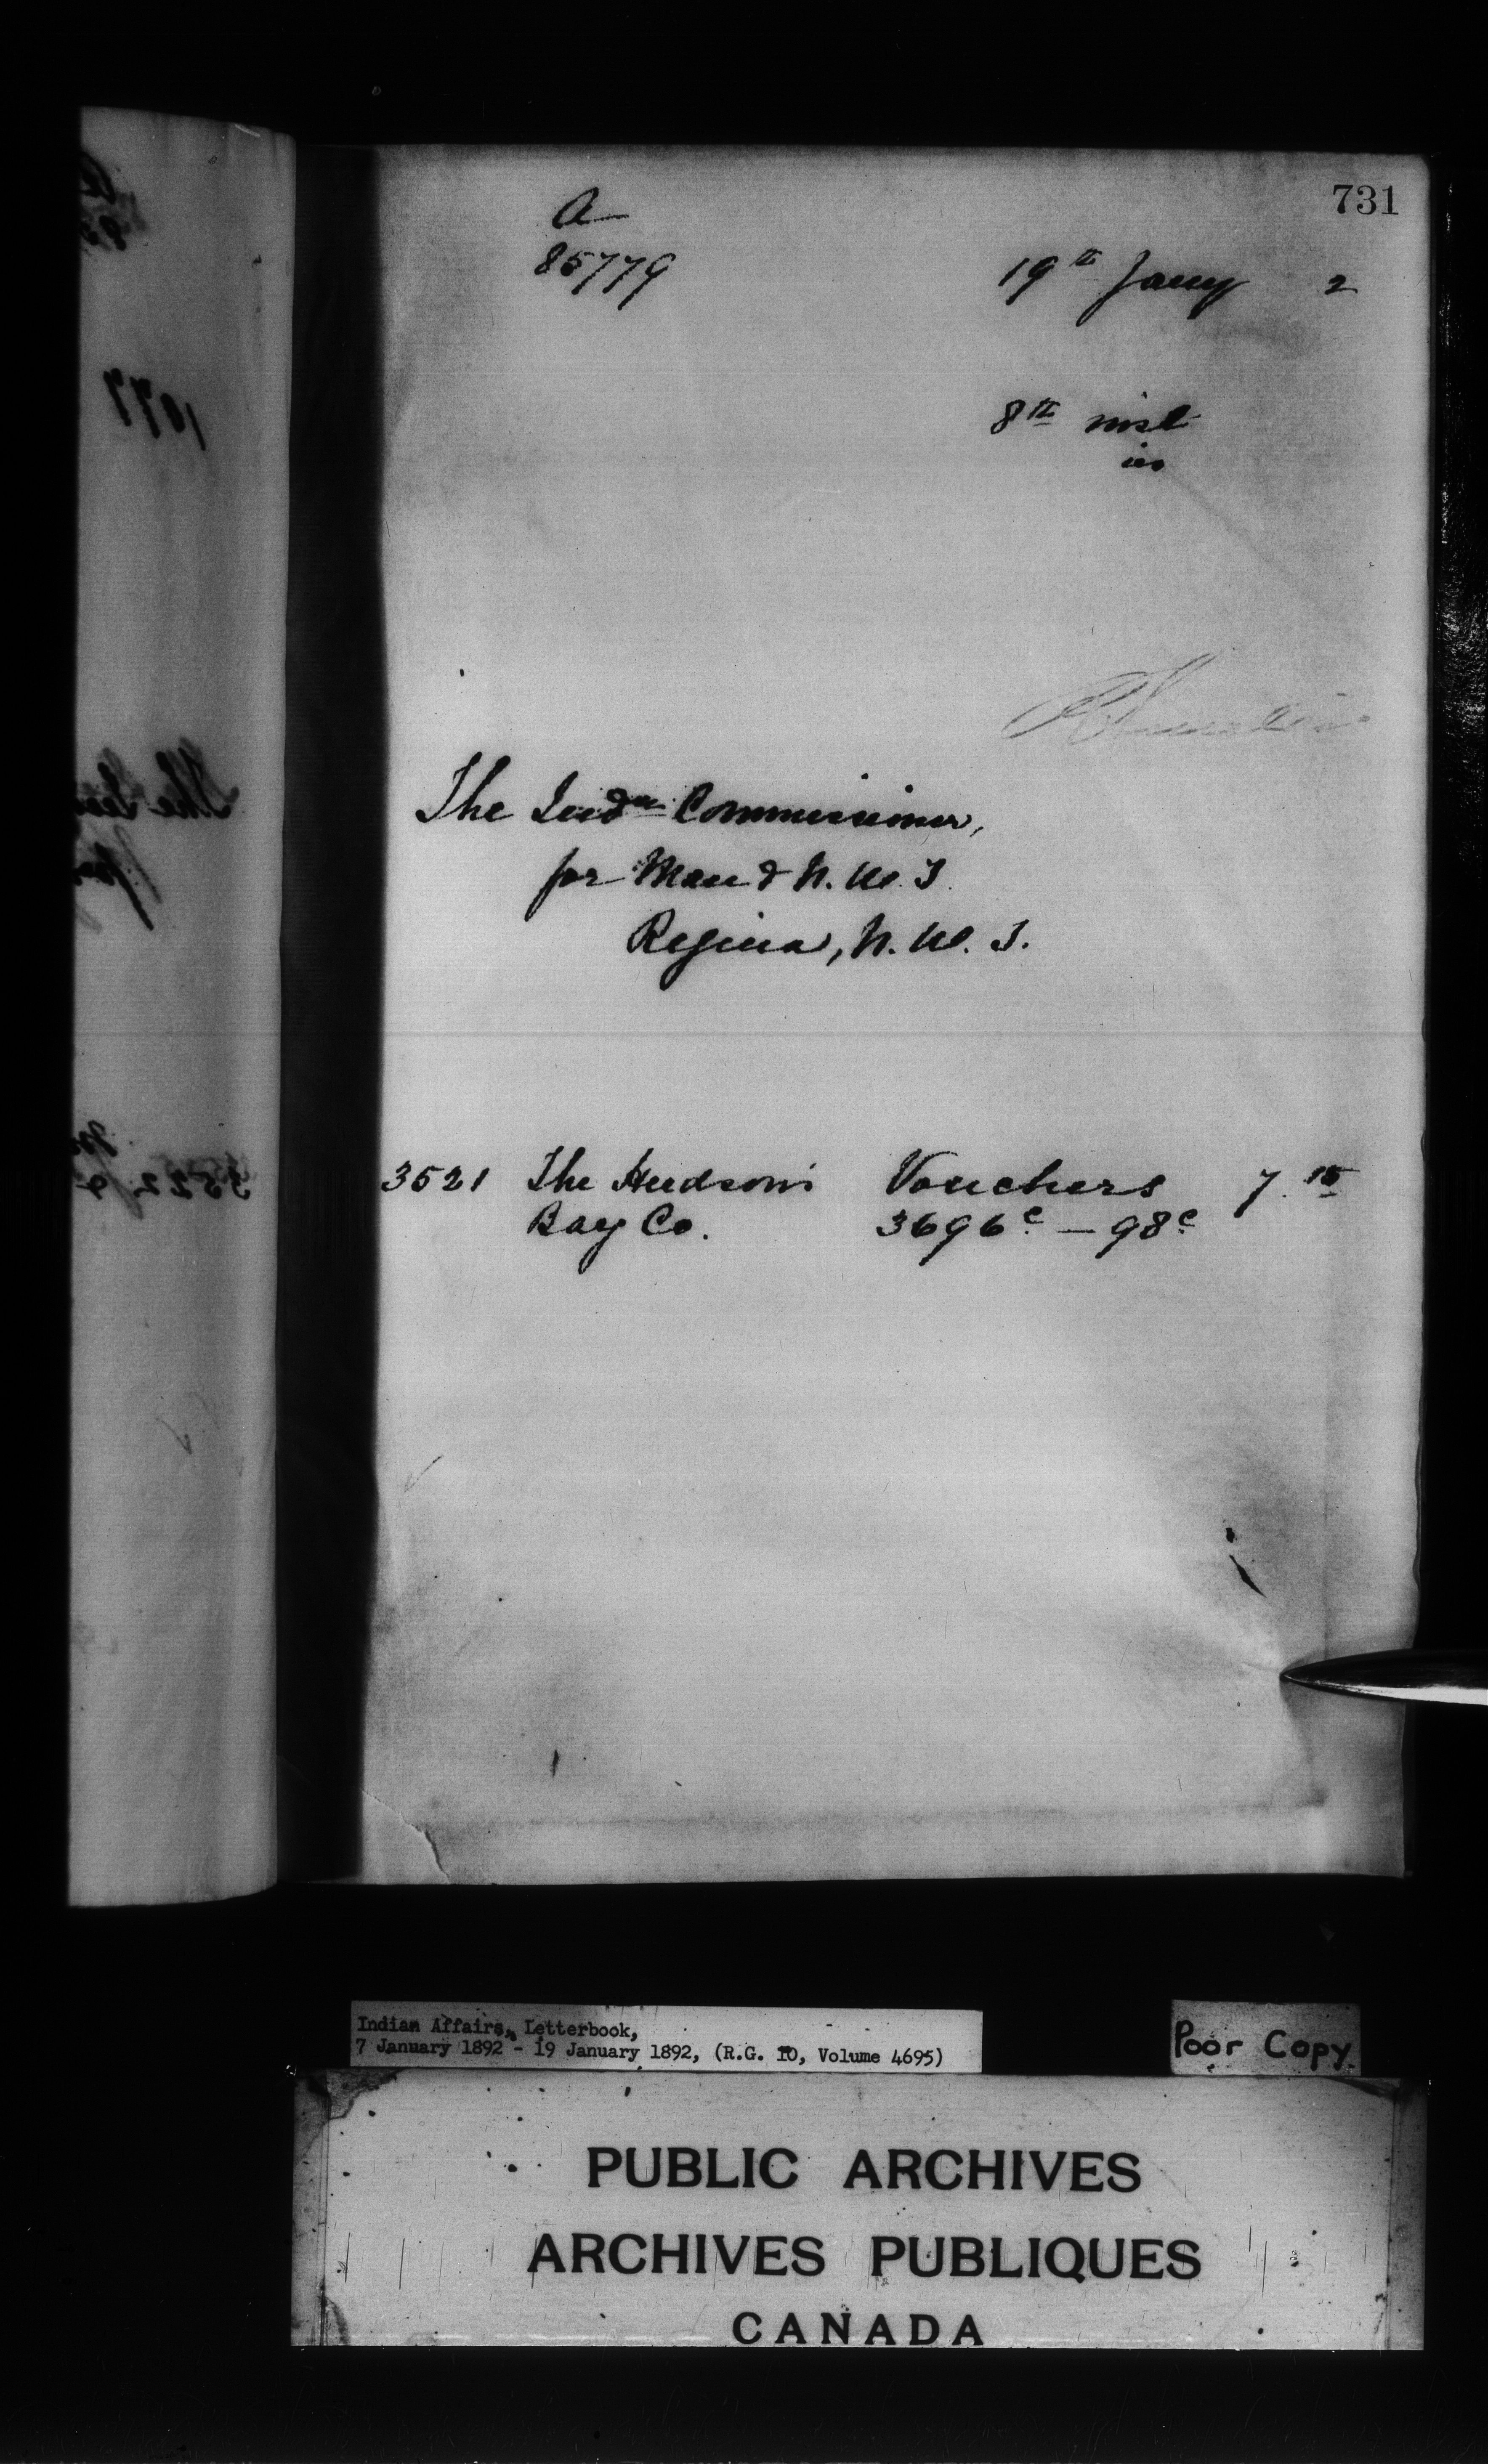 731
A
85779
19th Jany 2
8th inst
is
The Indn Commissioner,
for Man & N.W.T.
Regina, N.W.T.
3521 The Hudson's Vouchers 7.15
Bay Co. 3696c — 98c
Indian Affairs, Letterbook,
7 January 1892 - 19 January 1892, (R.G. 10, Volume 4695)
Poor Copy.
PUBLIC ARCHIVES
ARCHIVES PUBLIQUES
CANADA